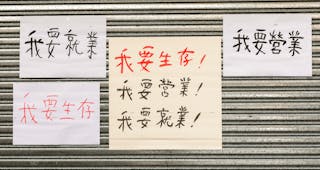 我要就業
我要生存
我要生存！
我要營業！
我要就業！
我要營業